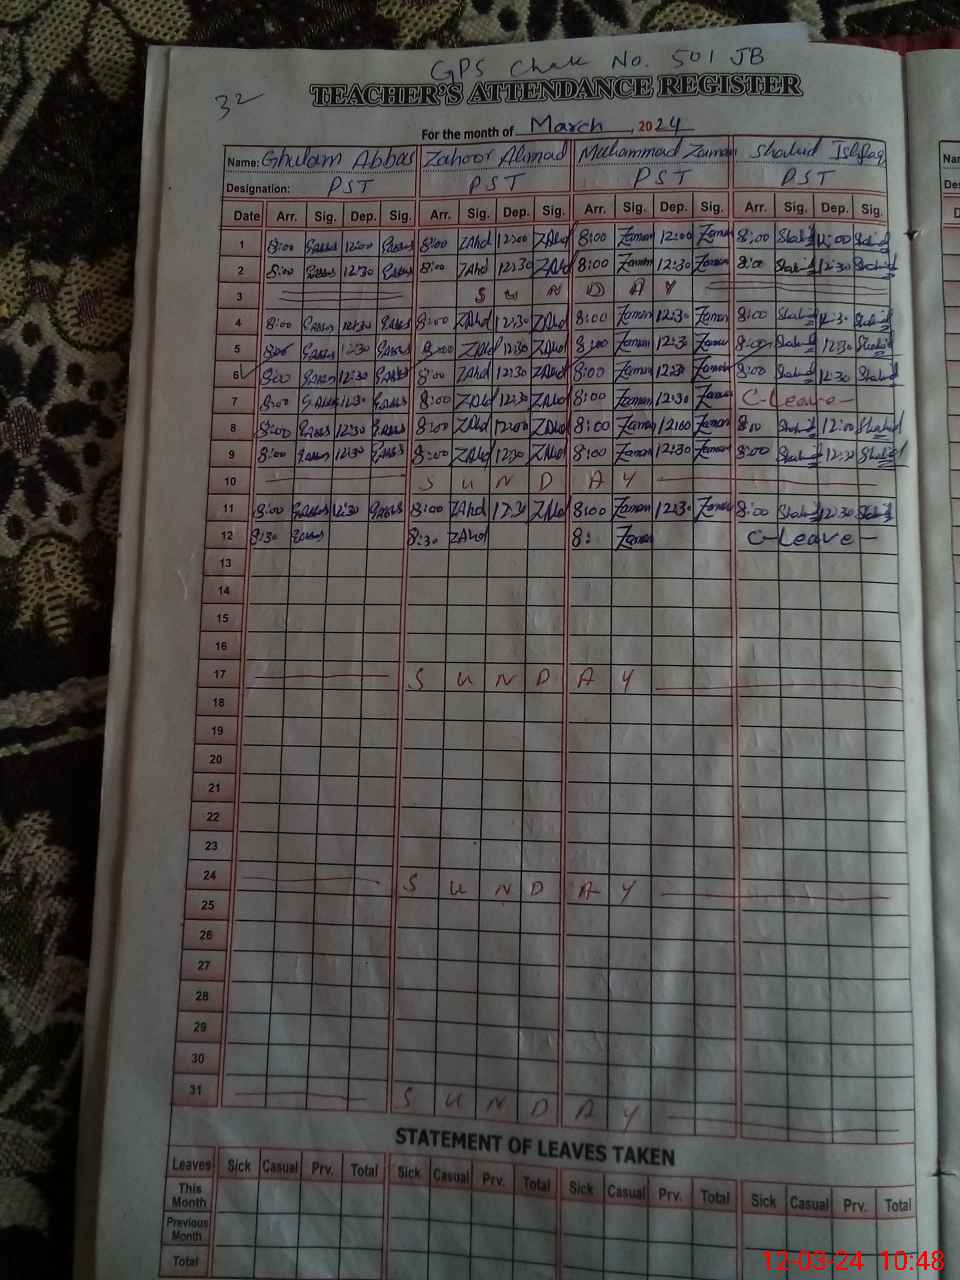 GPS Chak No. 501 JB
32
TEACHER'S ATTENDANCE REGISTER
For the month of March, 2024
Name: Ghulam Abbas Zahoor Ahmad Muhammad Zaman Shahid Ishfaq
Designation: PST PST PST PST
Date Arr. Sig. Dep. Sig. Arr. Sig. Dep. Sig. Arr. Sig. Dep. Sig. Arr. Sig. Dep. Sig.
1 8:00 12:00 8:00 ZAhd 12:00 ZAhd 8:00 Zaman 12:00 Zaman 8:00 Shahid 12:00 Shahid
2 8:00 12:30 8:00 ZAhd 12:30 ZAhd 8:00 Zaman 12:30 Zaman 8:00 Shahid 12:30 Shahid
3 S U N D A Y
4 8:00 12:30 8:00 ZAhd 12:30 ZAhd 8:00 Zaman 12:30 Zaman 8:00 Shahid 12:30 Shahid
5 8:00 12:30 8:00 ZAhd 12:30 ZAhd 8:00 Zaman 12:30 Zaman 8:00 Shahid 12:30 Shahid
6 8:00 12:30 8:00 ZAhd 12:30 ZAhd 8:00 Zaman 12:30 Zaman 8:00 Shahid 12:30 Shahid
7 8:00 12:30 8:00 ZAhd 12:30 ZAhd 8:00 Zaman 12:30 Zaman C-Leave-
8 8:00 12:30 8:00 ZAhd 12:00 ZAhd 8:00 Zaman 12:00 Zaman 8:00 Shahid 12:00 Shahid
9 8:00 12:30 8:00 ZAhd 12:30 ZAhd 8:00 Zaman 12:30 Zaman 8:00 Shahid 12:30 Shahid
10 S U N D A Y
11 8:00 12:30 8:00 ZAhd 12:30 ZAhd 8:00 Zaman 12:30 Zaman 8:00 Shahid 12:30 Shahid
12 8:30 8:30 ZAhd 8: Zaman C-Leave-
13
14
15
16
17 S U N D A Y
18
19
20
21
22
23
24 S U N D A Y
25
26
27
28
29
30
31 S U N D A Y
STATEMENT OF LEAVES TAKEN
Leaves Sick Casual Prv. Total Sick Casual Prv. Total Sick Casual Prv. Total Sick Casual Prv. Total
This
Month
Previous
Month
Total
12-03-24 10:48